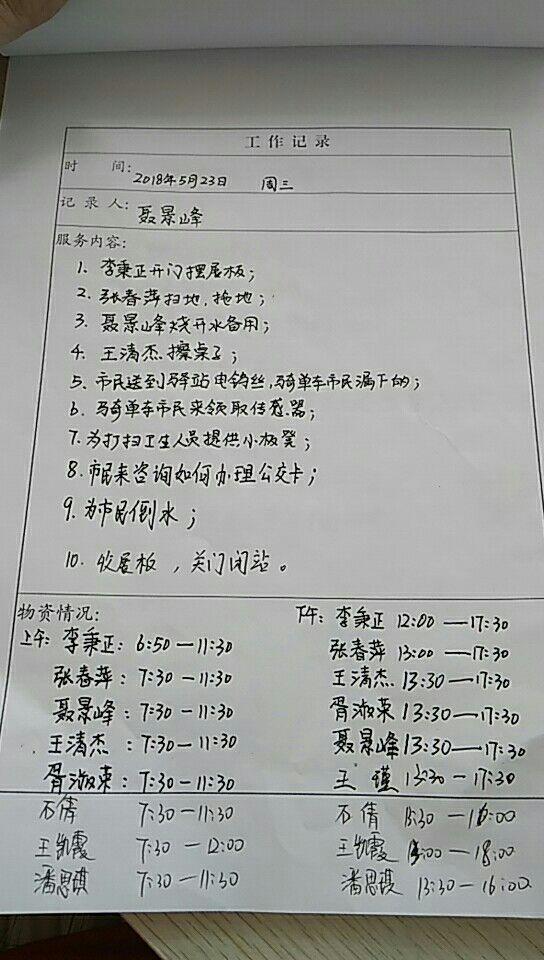 工作记录
时 间: 2018年5月23日 周三
记录人: 聂景峰
服务内容:
1. 李秉正开门摆展板;
2. 张春萍扫地,拖地;
3. 聂景峰烧开水备用;
4. 王清杰擦桌子;
5. 市民送到驿站电钩丝,骑单车市民漏下的;
6. 骑单车市民来领取传感器;
7. 为打扫卫生人员提供小板凳;
8. 市民来咨询如何办理公交卡;
9. 为市民倒水;
10. 收展板,关门闭站。
物资情况:
上午: 李秉正: 6:50—11:30
张春萍: 7:30—11:30
聂景峰: 7:30—11:30
王清杰: 7:30—11:30
胥淑荣: 7:30—11:30
石倩 7:30—11:30
王凯霞 7:30—12:00
潘思琪 7:30—11:30
下午: 李秉正 12:00—17:30
张春萍 13:00—17:30
王清杰 13:30—17:30
胥淑荣 13:30—17:30
聂景峰 13:30—17:30
王瑾 13:30—17:30
石倩 13:30—16:00
王凯霞 13:00—18:00
潘思琪 13:30—16:00